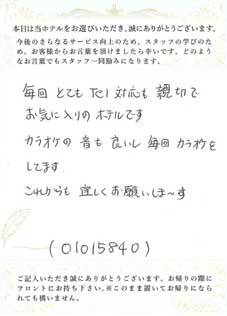 本日は当ホテルをお選びいただき、誠にありがとうございます。
今後のさらなるサービス向上のため、スタッフの学びのた
め、お客様からお言葉を頂けましたら幸いです。どのよう
なお言葉でもスタッフ一同励みになります。
毎回 とても TEl 対応も 親切で
お気に入りの ホテルです
カラオケの 音も 良いし 毎回 カラオケを
してます.
これからも 宜しくお願いしま〜す
(01015840)
ご記入いただき誠にありがとうございます。お帰りの際に
フロントにお持ち下さい。※このまま置いてお帰りになら
れても構いません。